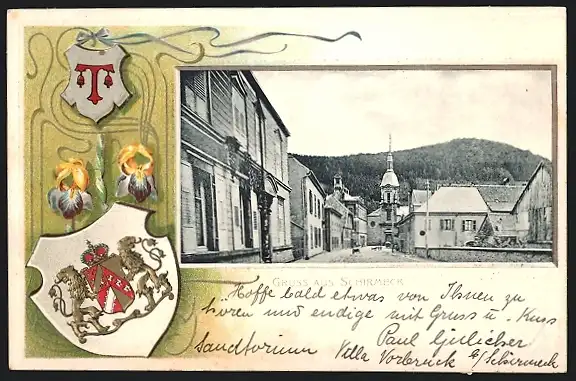 T
GRUSS AUS SCHIRMECK
Hoffe bald etwas von Ihnen zu
hören und endige mit Gruss u. Kuss
Paul
Sanatorium Villa Vorbruck b/Schirmeck